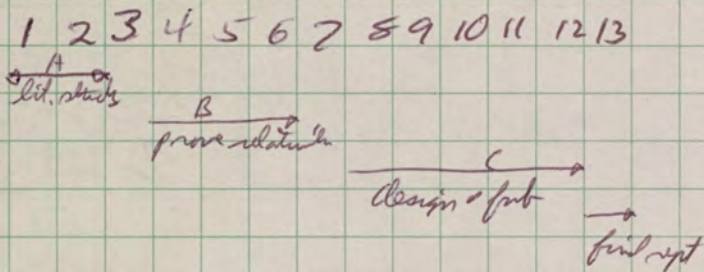 1 2 3 4 5 6 7 8 9 10 11 12 13
A
lit. study
B
prove relation
C
design & fab
final rept